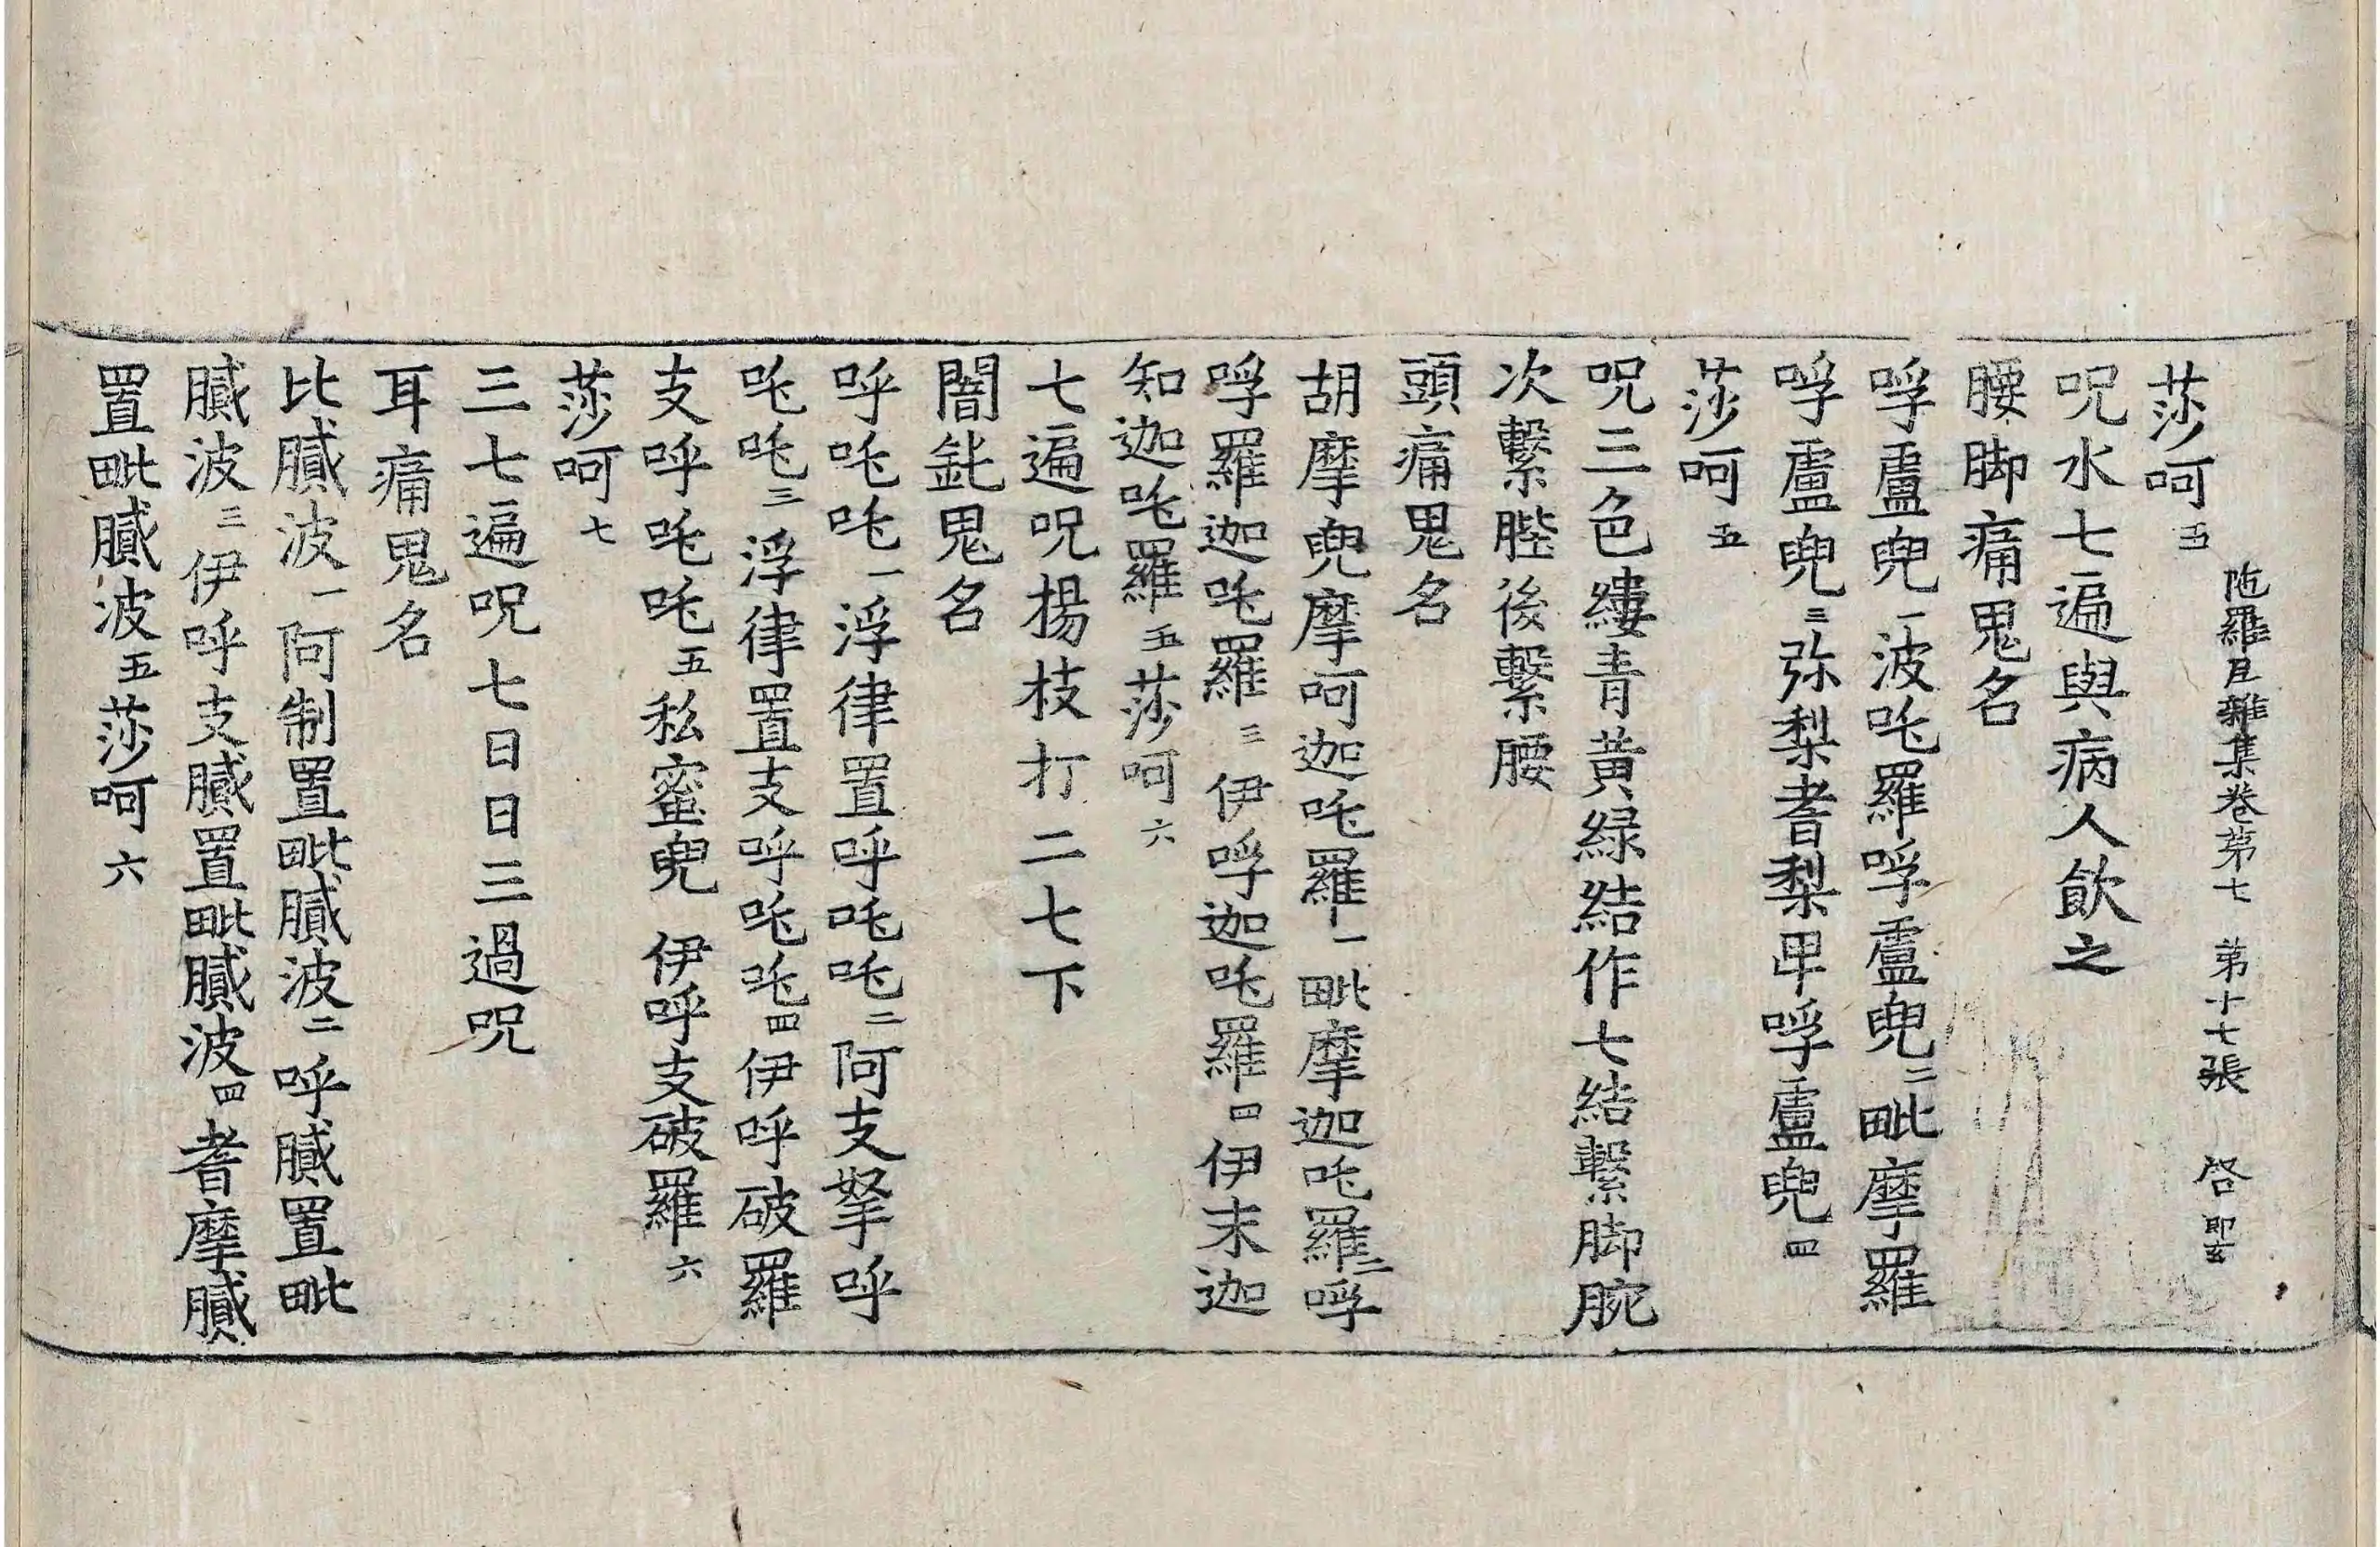 陁羅尼雜集卷第七 第十七張 啓
莎呵五
呪水七遍與病人飲之
腰脚痛鬼名
嘙盧兜一波吒羅嘙盧兜二毗摩羅
嘙盧兜三弥梨耆梨帍嘙盧兜四
莎呵五
呪三色縷青黃綠結作七結繫脚腕
次繫䏶後繫腰
頭痛鬼名
胡摩兜摩呵迦吒羅一毗摩迦吒羅二嘙
嘙羅迦吒羅三伊嘙迦吒羅四伊末迦
知迦吒羅五莎呵六
七遍呪揚枝打二七下
闇鈋鬼名
呼吒吒一浮律置呼吒吒二阿支拏呼
吒吒三浮律置支呼吒吒四伊呼破羅
支呼吒吒五私蜜兜伊呼支破羅六
莎呵七
三七遍呪七日日三過呪
耳痛鬼名
比膩波一阿制置毗膩波二呼膩置毗
膩波三伊呼支膩置毗膩波四耆摩膩
置毗膩波五莎呵六